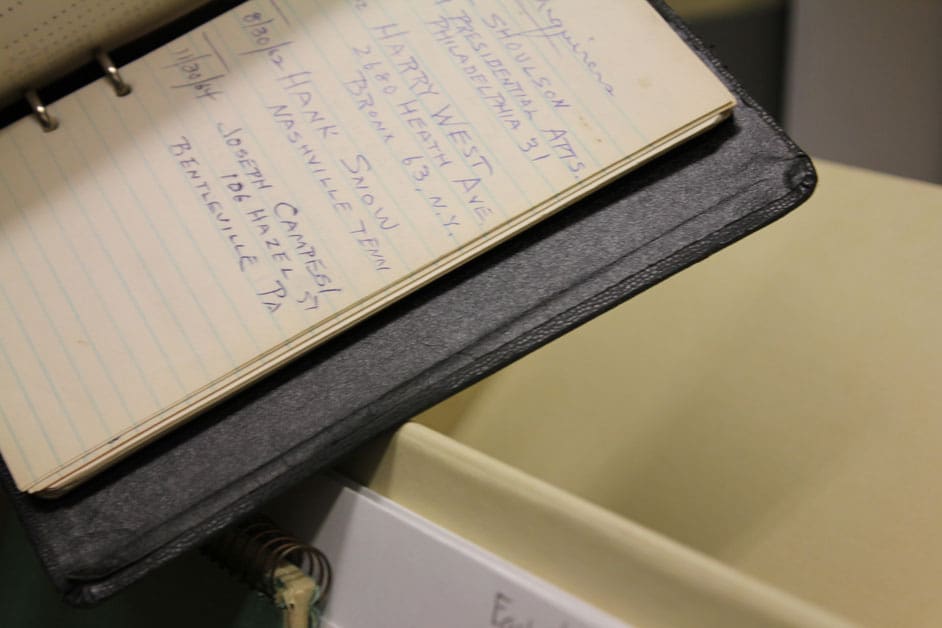 Inquiries
SHOULSON
PRESIDENTIAL APTS.
PHILADELPHIA 31
HARRY WEST
2680 HEATH AVE
BRONX 63, N.Y.
8/30/62 HANK SNOW
NASHVILLE TENN
11/30/64 JOSEPH CAMPESI
106 HAZEL ST
BENTLEVILLE PA